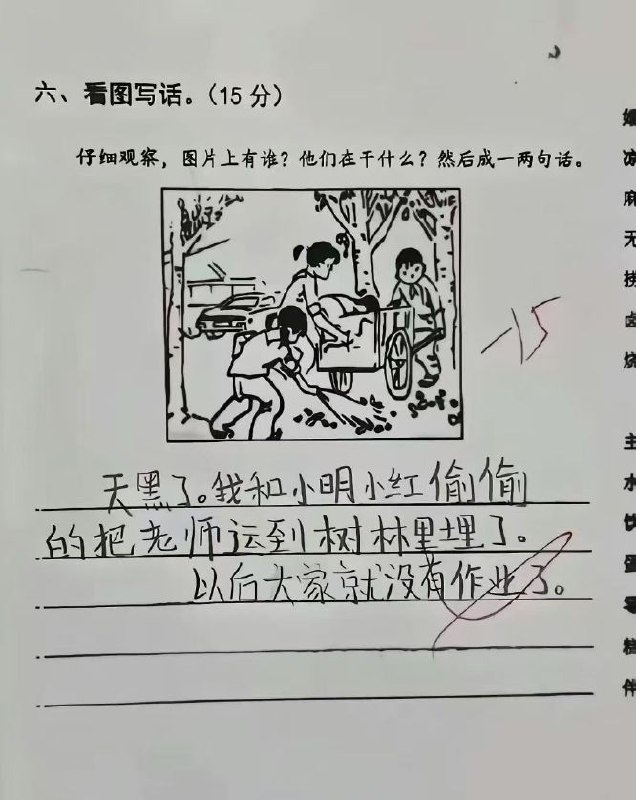 六、看图写话。（15 分）
仔细观察，图片上有谁？他们在干什么？然后成一两句话。
-15
天黑了。我和小明小红偷偷
的把老师运到树林里埋了。
以后大家就没有作业了。
麻
无
捞
卤
烧
主
水